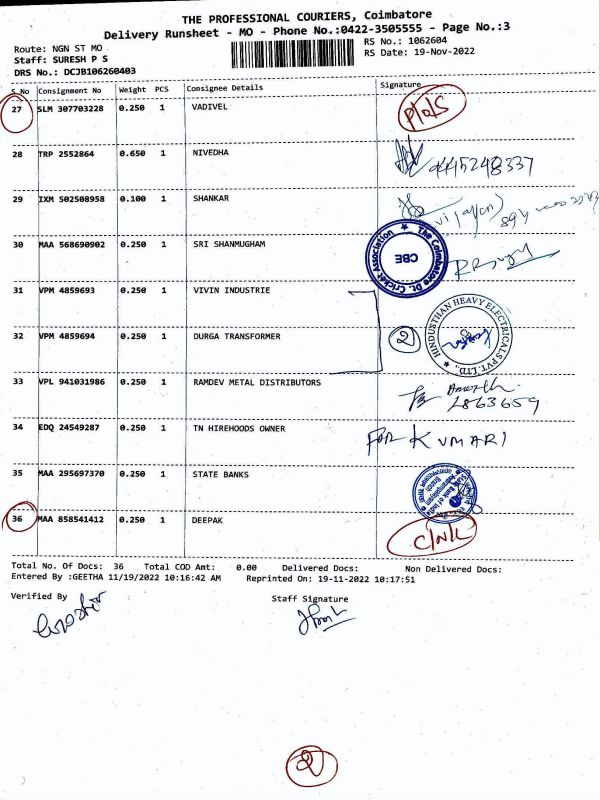 THE PROFESSIONAL COURIERS, Coimbatore
Delivery Runsheet - MO - Phone No.:0422-3505555 - Page No.:3
Route: NGN ST MO
RS No.: 1062604
Staff: SURESH P S
RS Date: 19-Nov-2022
DRS No.: DCJB106260403
S_No Consignment No Weight PCS Consignee Details Signature
27 SLM 307703228 0.250 1 VADIVEL
28 TRP 2552864 0.650 1 NIVEDHA
29 IXM 502508958 0.100 1 SHANKAR
30 MAA 568690902 0.250 1 SRI SHANMUGHAM
The Coimbatore Dt. Cricket Association
CBE
31 VPM 4859693 0.250 1 VIVIN INDUSTRIE
32 VPM 4859694 0.250 1 DURGA TRANSFORMER
2
HINDUSTHAN HEAVY ELECTRICALS PVT. LTD.,
33 VPL 941031986 0.250 1 RAMDEV METAL DISTRIBUTORS
34 EDQ 24549287 0.250 1 TN HIREHOODS OWNER
For KUMARI
35 MAA 295697370 0.250 1 STATE BANKS
State Bank of India
36 MAA 858541412 0.250 1 DEEPAK
Total No. Of Docs: 36 Total COD Amt: 0.00 Delivered Docs: Non Delivered Docs:
Entered By :GEETHA 11/19/2022 10:16:42 AM Reprinted On: 19-11-2022 10:17:51
Verified By
Staff Signature
2